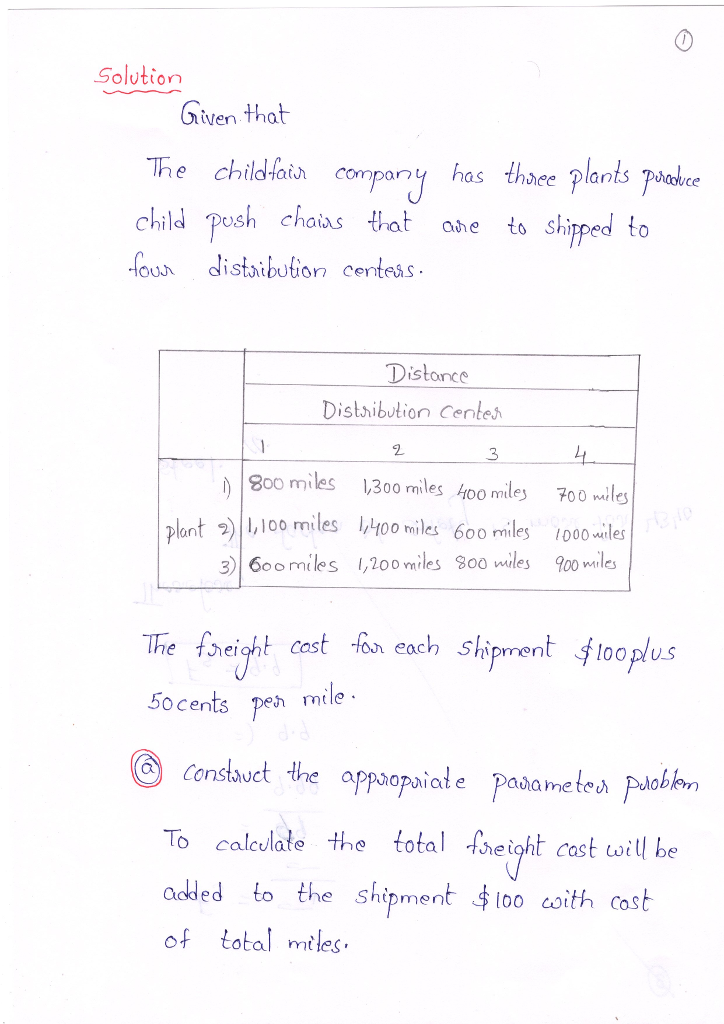 1
Solution
Given that
The childfair company has three plants produce
child push chairs that are to shipped to
four distribution centers.
Distance
Distribution Center
1 2 3 4
1) 800 miles 1,300 miles 400 miles 700 miles
plant 2) 1,100 miles 1,400 miles 600 miles 1000 miles
3) 600 miles 1,200 miles 800 miles 900 miles
The freight cost for each shipment $100 plus
50cents per mile.
a construct the appropriate parameter problem
To calculate the total freight cost will be
added to the shipment $100 with cost
of total miles.